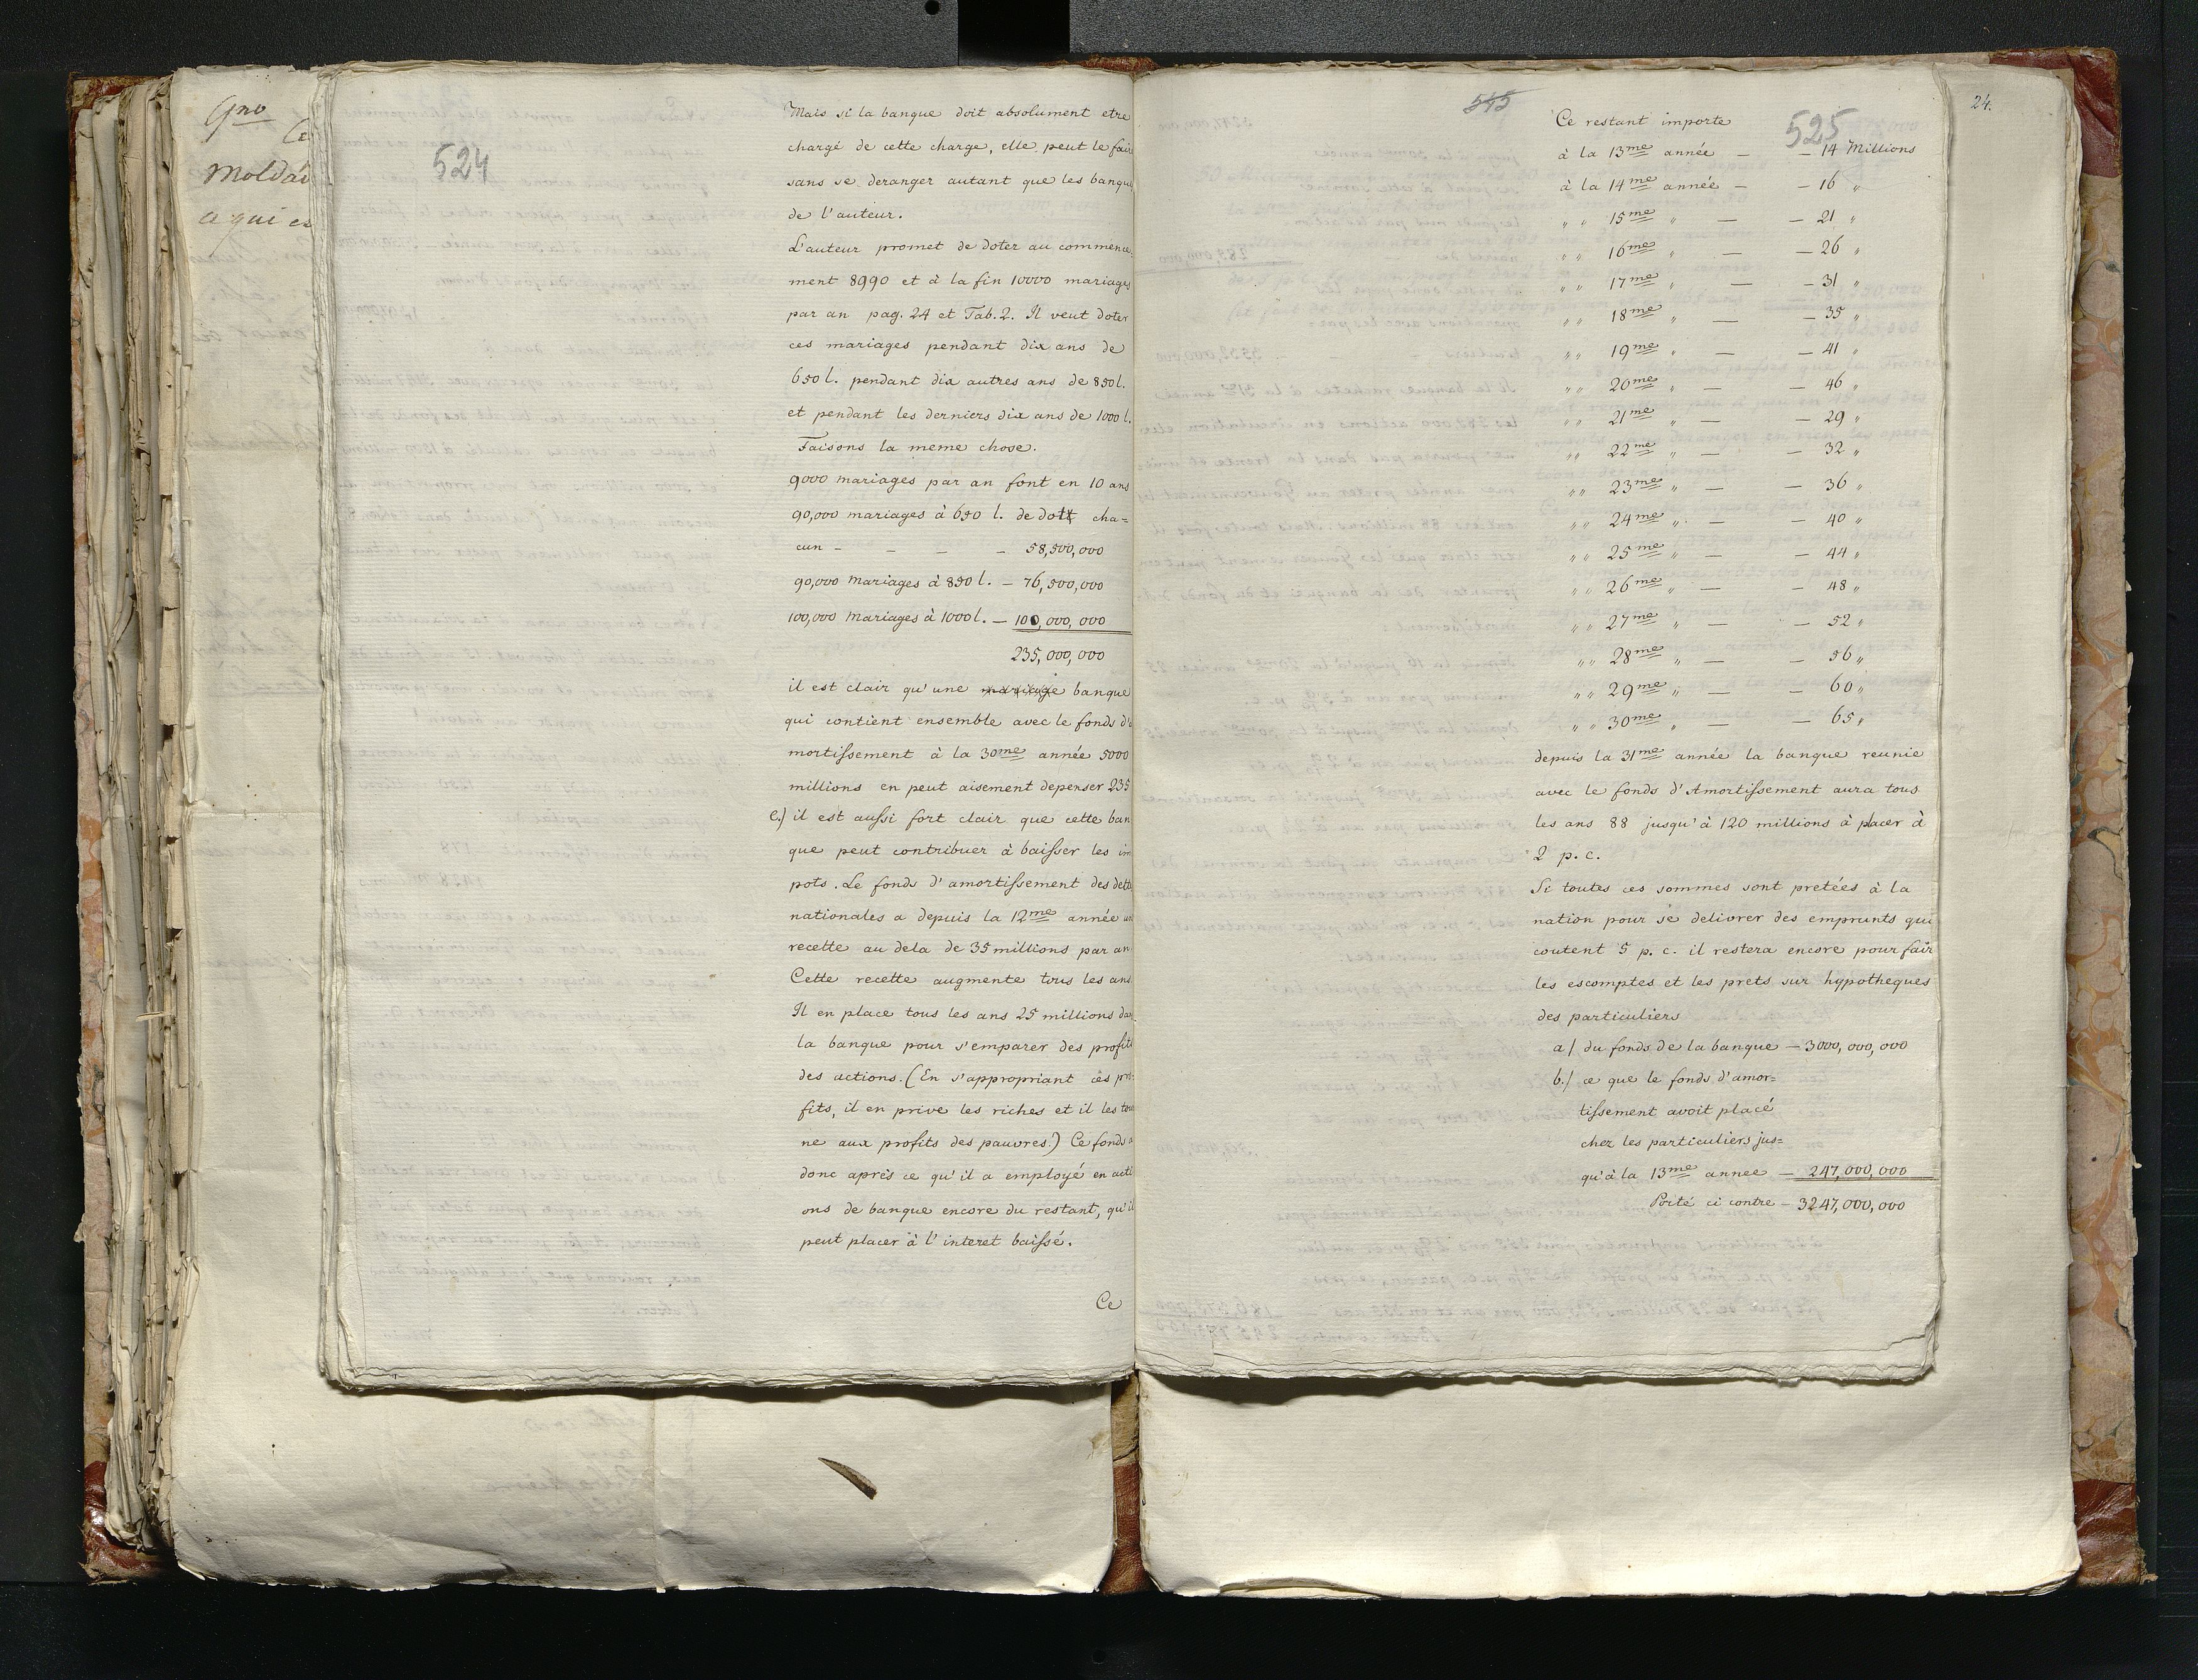 9no
Ce
Moldai
a qui es
524
Mais si la banque doit absolument etre
chargé de cette charge, elle peut le fair
sans se deranger autant que les banqu
de l'auteur.
L'auteur promet de doter au commence
ment 8990 et à la fin 10000 mariages
par an pag. 24 et Tab. 2. Il veut doter
ces mariages pendant dix ans de
650 l. pendant dix autres ans de 850 l.
et pendant les derniers dix ans de 1000 l.
Faisons la meme chose.
9000 mariages par an font en 10 ans
90,000 mariages à 650 l. de dott cha=
cun - - - - 58,500,000
90,000 mariages à 850 l. — 76,500,000
100,000 mariages à 1000 l. — 100,000,000
235,000,000
il est clair qu'une mariage banque
qui contient ensemble avec le fonds d'a
mortissement à la 30me année 5000
millions en peut aisement depenser 235
e.) il est aussi fort clair que cette ban
que peut contribuer à baisser les im
pots. Le fonds d'amortissement des dett
nationales a depuis la 12me année un
recette au dela de 35 millions par an.
Cette recette augmente tous les ans.
Il en place tous les ans 25 millions da
la banque pour s'emparer des profit
des actions. (En s'appropriant ces pro-
fits, il en prive les riches et il les tou
ne aux profits des pauvres.) Ce fonds a
donc après ce qu'il a employé en acti
ons de banque encore du restant, qu'il
peut placer à l'interet baissé.
Ce
545
525
24.
Ce restant importe
à la 13me année — — 14 Millions
à la 14me année — — 16 "
" " 15me " — — 21 "
" " 16me " — — 26 "
" " 17me " — — 31 "
" " 18me " — — 35 "
" " 19me " — — 41 "
" " 20me " — — 46 "
" " 21me " — — 29 "
" " 22me " — — 32 "
" " 23me " — — 36 "
" " 24me " — — 40 "
" " 25me " — — 44 "
" " 26me " — — 48 "
" " 27me " — — 52 "
" " 28me " — — 56 "
" " 29me " — — 60 "
" " 30me " — — 65 "
depuis la 31me année la banque reunie
avec le fonds d'Amortissement aura tous
les ans 88 jusqu'à 120 millions à placer à
2 p. c.
Si toutes ces sommes sont pretées à la
nation pour se delivrer des emprunts qui
coutent 5 p. c. il restera encore pour fair
les escomptes et les prets sur hypotheques
des particuliers
a) du fonds de la banque — 3000,000,000
b.) ce que le fonds d'amor=
tissement avoit placé
chez les particuliers jus=
qu'à la 13me annee — 247,000,000
Porté ci contre — 3247,000,000